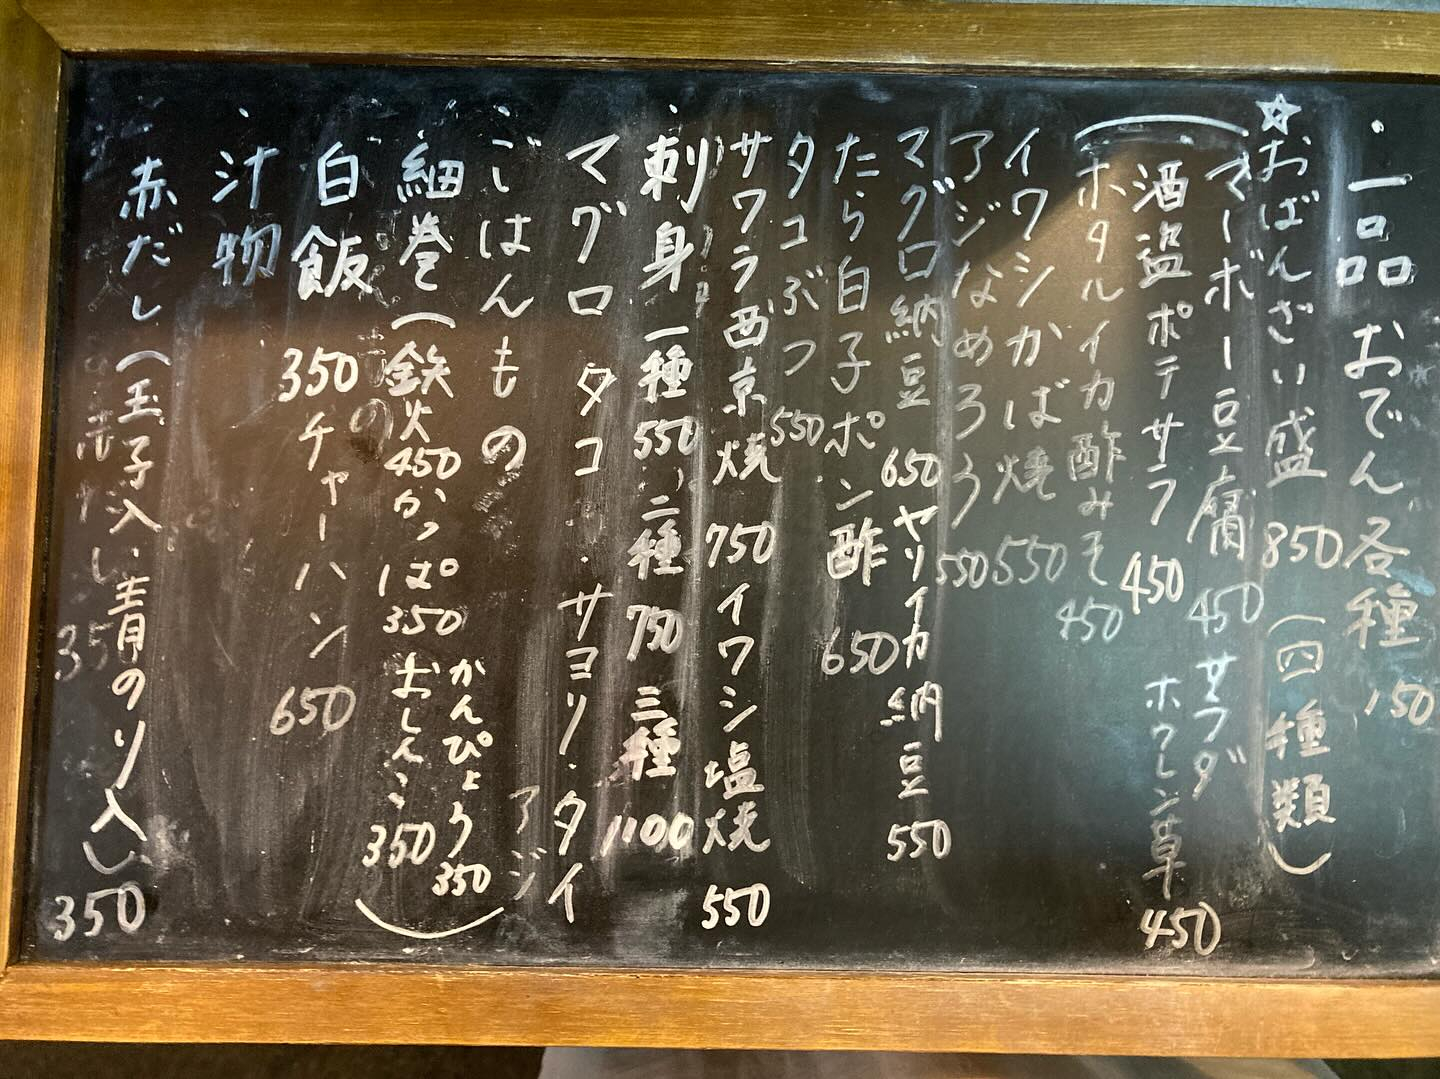 ・一品 おでん各種 150
☆おばんざい盛 850 (四種類)
マーボー豆腐 450 サラダ ホウレン草 450
酒盗ポテサラ 450
ホタルイカ酢みそ 450
イワシかば焼 550
アジなめろう 550
マグロ納豆 650 ヤリイカ納豆 550
たら白子ポン酢 650
タコぶつ 550
サワラ西京焼 750 イワシ塩焼 550
・刺身 一種 550 二種 750 三種 1100
マグロ タコ・サヨリ・タイ
アジ
・ごはんもの
細巻(鉄火 450 かっぱ 350 おしんこ 350 かんぴょう 350)
白飯 350 チャーハン 650
・汁物
赤だし(玉子入り、青のり入り) 350